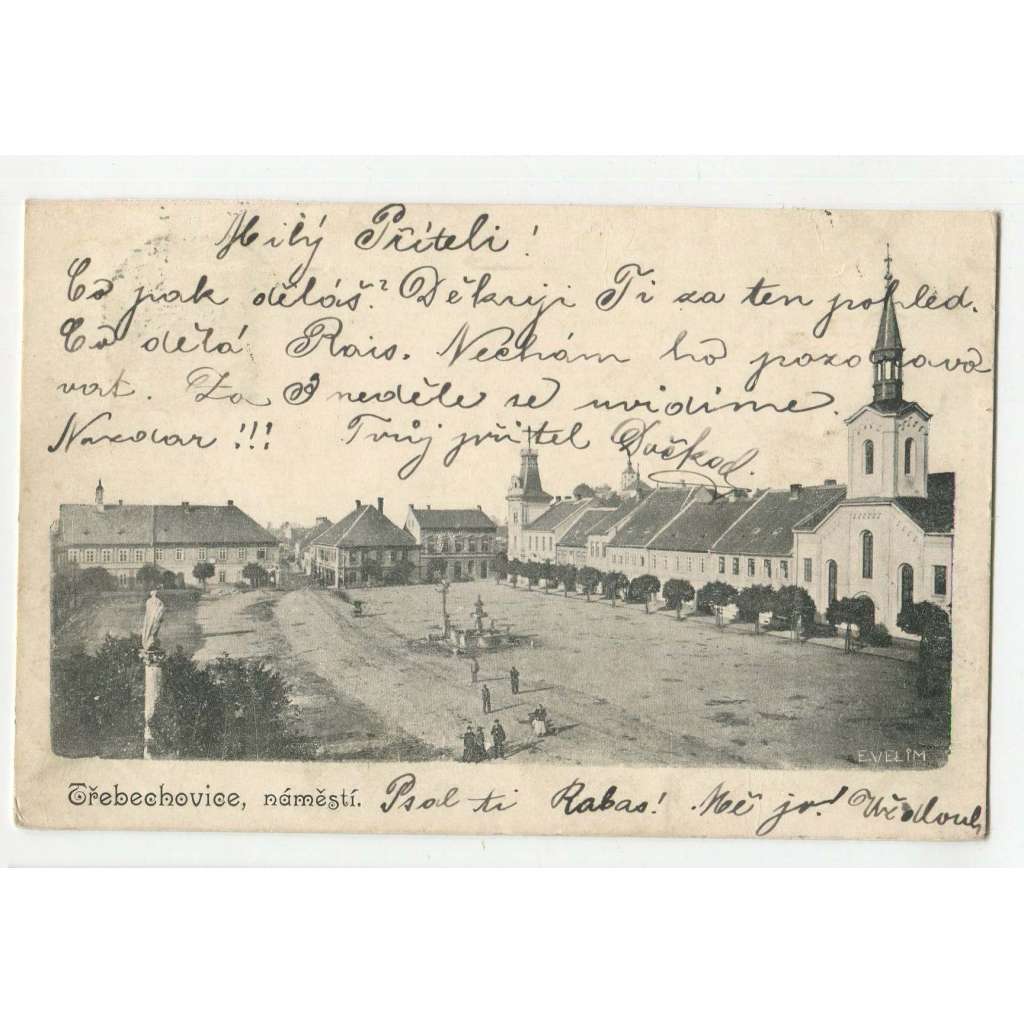 Milý Příteli!
Co pak děláš? Děkuji Ti za ten pohled.
Co dělá Rais. Nechám ho pozdravo
vat. Za 3 neděle se uvidíme.
Nazdar!!! Tvůj přítel
E. VELÍM
Třebechovice, náměstí. Psal ti Rabas! Mě jo!